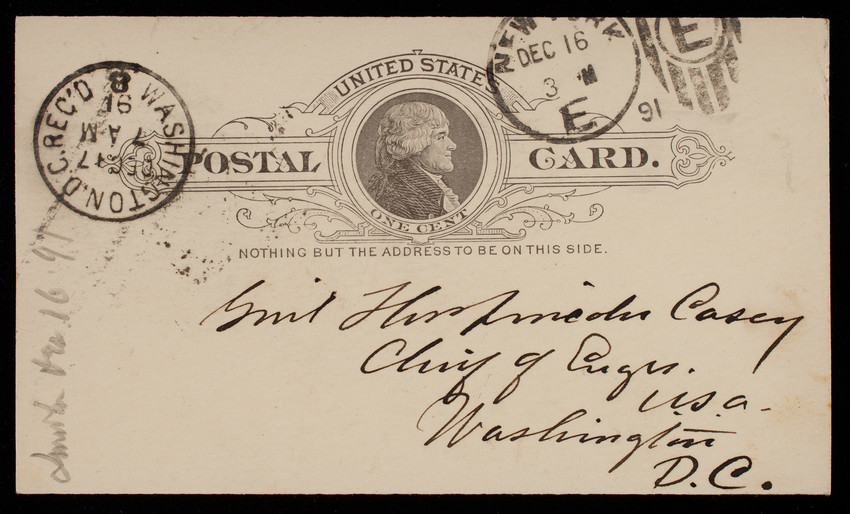 UNITED STATES
POSTAL CARD.
ONE CENT
NOTHING BUT THE ADDRESS TO BE ON THIS SIDE.
NEW YORK
DEC 16
3 M
E
91
E
WASHINGTON, D.C. REC'D
DEC 17
7 AM
91
8
Genl Thos Lincoln Casey
Chief of Engrs.
U.S.A.
Washington
D.C.
Dec 16 91